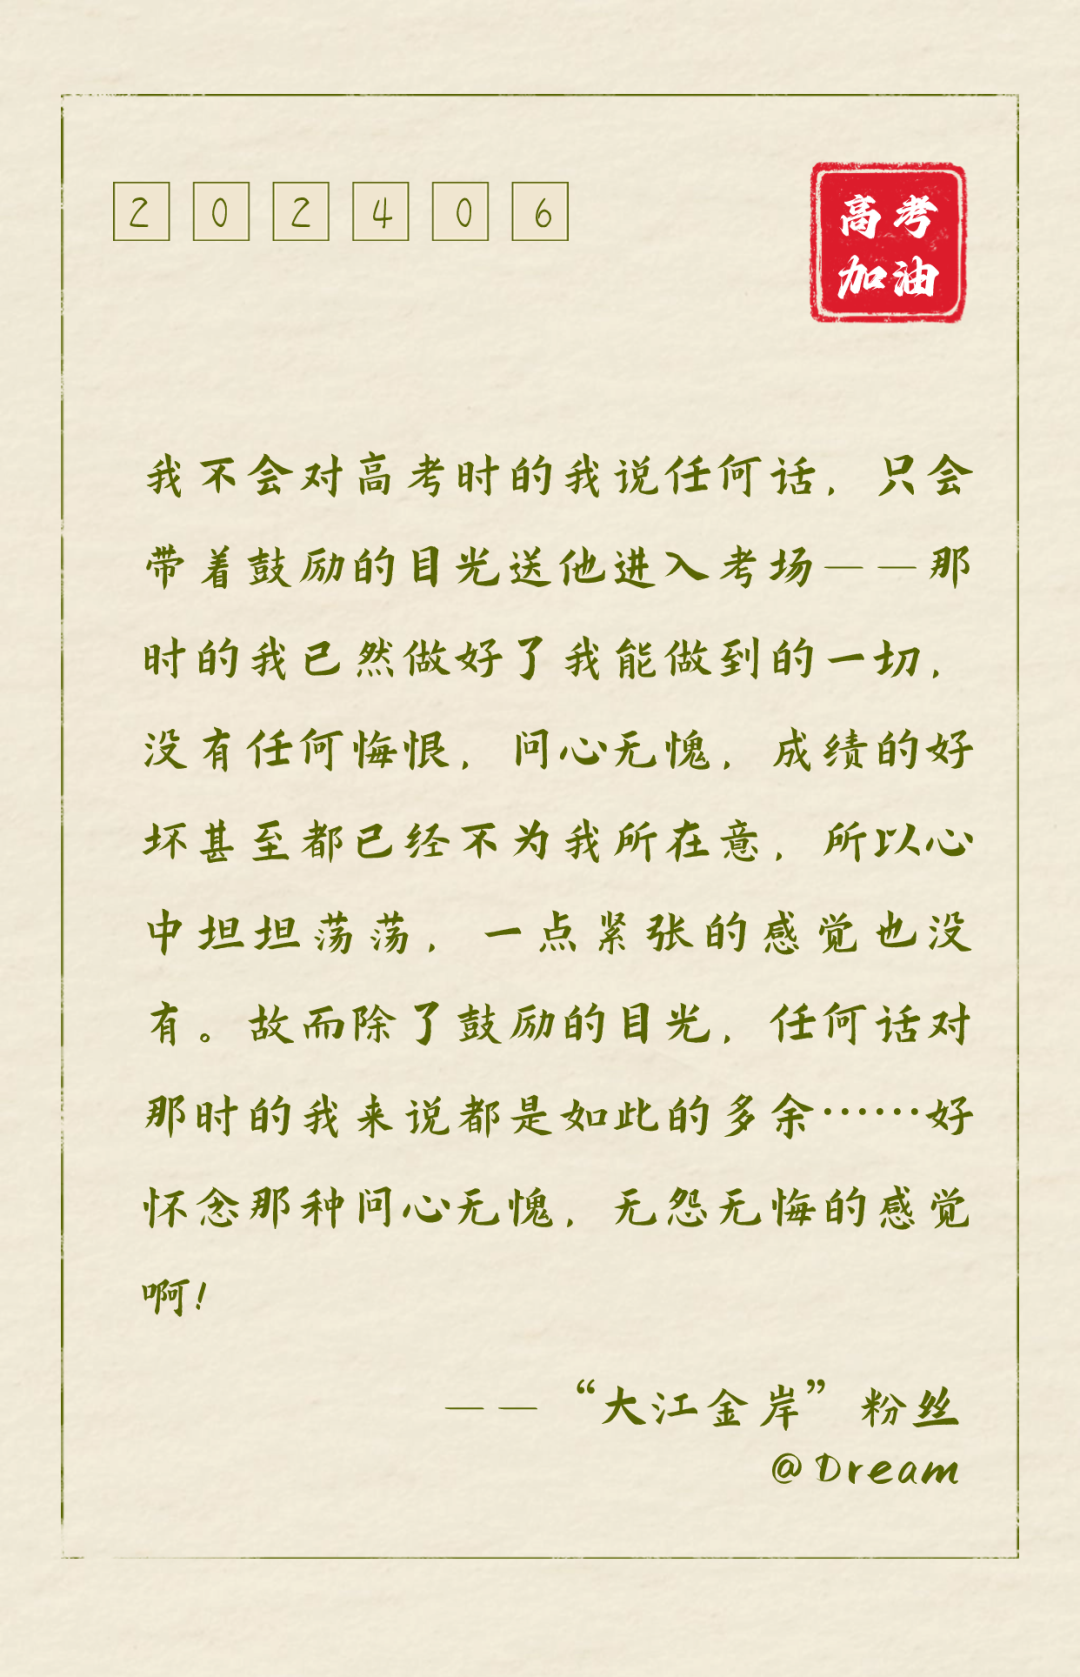 202406
高考
加油
我不会对高考时的我说任何话，只会
带着鼓励的目光送他进入考场——那
时的我已然做好了我能做到的一切，
没有任何悔恨，问心无愧，成绩的好
坏甚至都已经不为我所在意，所以心
中坦坦荡荡，一点紧张的感觉也没
有。故而除了鼓励的目光，任何话对
那时的我来说都是如此的多余……好
怀念那种问心无愧，无怨无悔的感觉
啊！
——“大江金岸”粉丝
@Dream